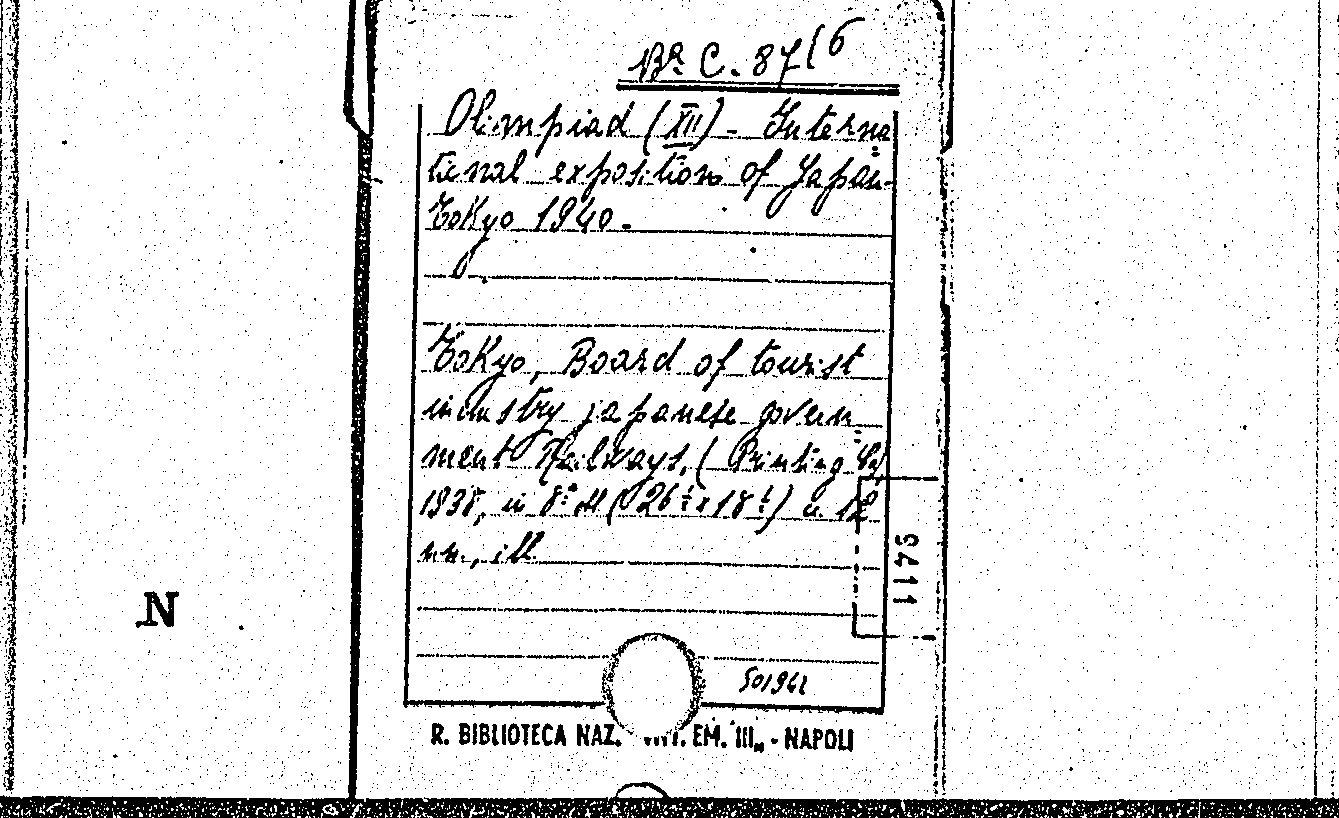 Br. C. 87/6
Olimpiad (XII) - Interna
tional expositions of Japan-
Tokyo 1940.
Tokyo, Board of tourist
industry japanese govern
ment Railways, (Printing Co)
1938, in 8° (26½ x 18½) 12
nn., ill
9411
N
501962
R. BIBLIOTECA NAZ. EM. III„ - NAPOLI